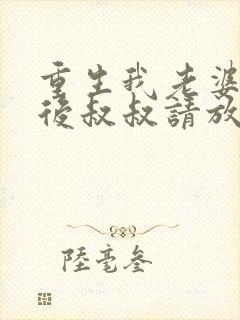 重生我老婆
後叔叔請放
陸毫叁